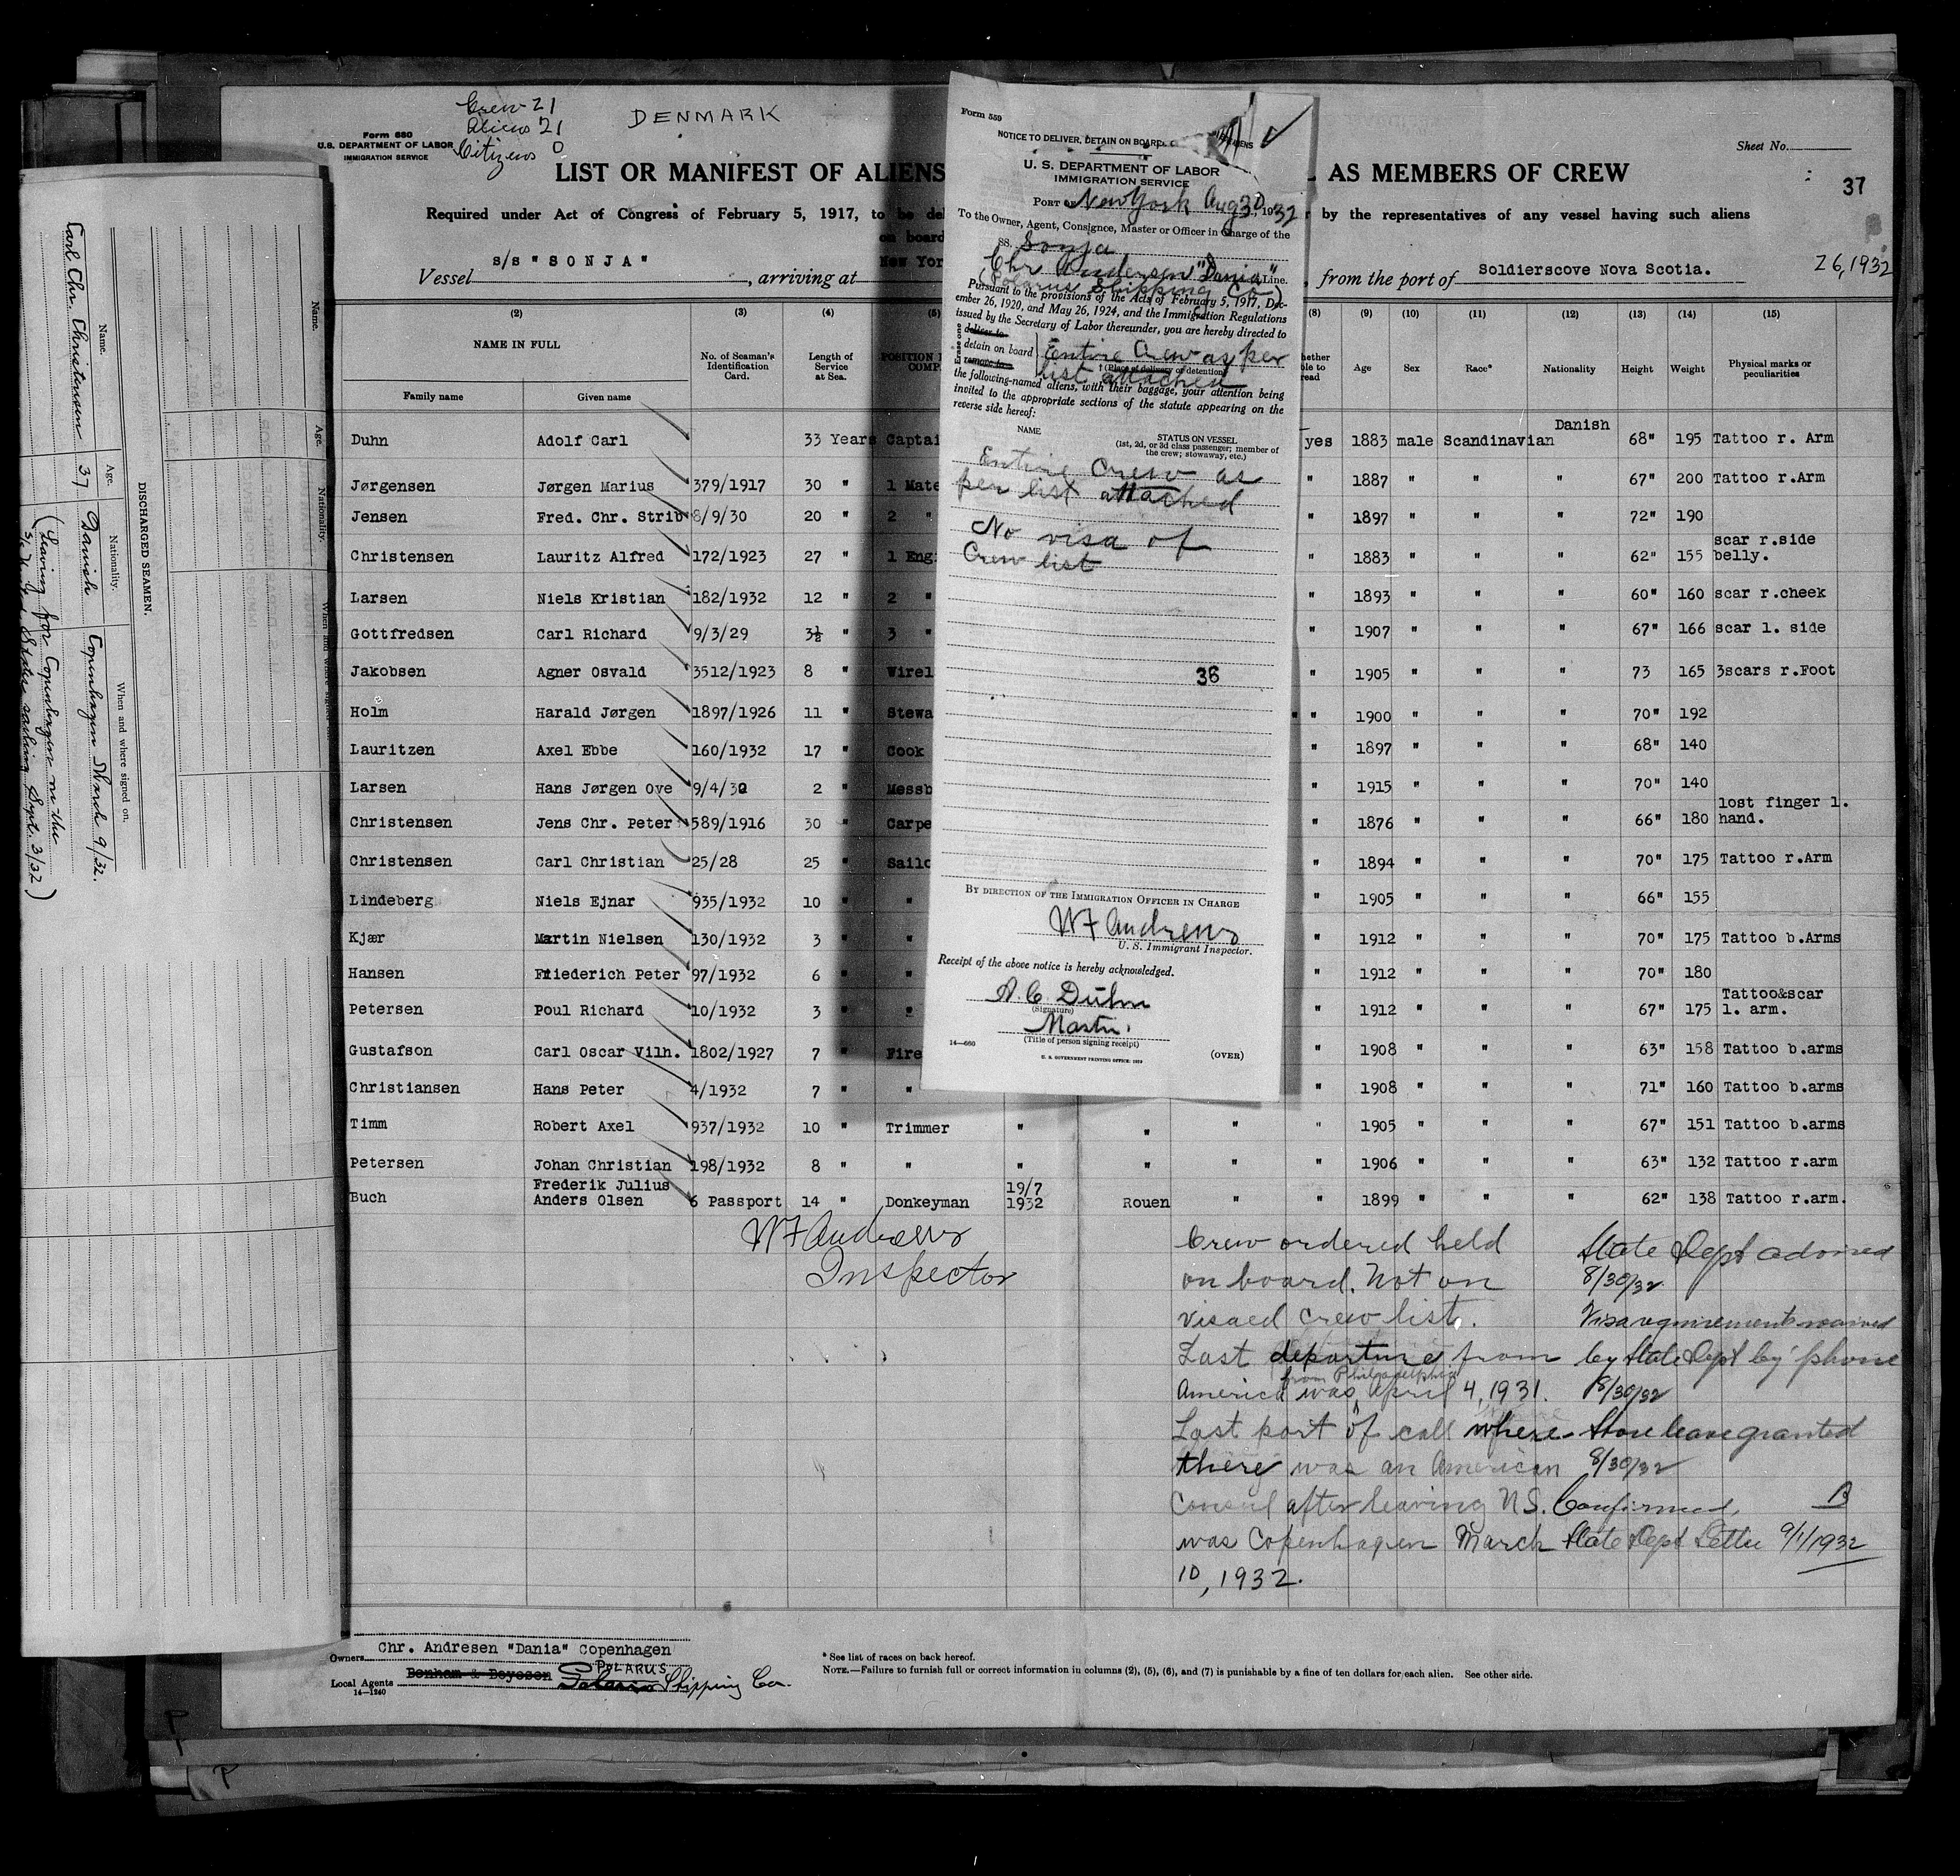 Crew 21
Aliens 21
Citizens 0
DENMARK
Form 680
U.S. DEPARTMENT OF LABOR
IMMIGRATION SERVICE
Sheet No.
37
LIST OR MANIFEST OF ALIENS
AS MEMBERS OF CREW
Required under Act of Congress of February 5, 1917, to be del
by the representatives of any vessel having such aliens
on board
New Yor
Vessel s/s "SONJA", arriving at
, from the port of Soldierscove Nova Scotia.
26, 1932
(2) (3) (4) (5) (8) (9) (10) (11) (12) (13) (14) (15)
NAME IN FULL
Family name Given name
No. of Seaman's Identification Card.
Length of Service at Sea.
POSITION
COMP
hether
ble to
read
Age Sex Race* Nationality Height Weight Physical marks or peculiarities
Duhn Adolf Carl 33 Years Captai yes 1883 male Scandinavian Danish 68" 195 Tattoo r. Arm
Jørgensen Jørgen Marius 379/1917 30 " 1 Mate " 1887 " " " 67" 200 Tattoo r.Arm
Jensen Fred. Chr. Strib 8/9/30 20 " 2 " " 1897 " " " 72" 190
Christensen Lauritz Alfred 172/1923 27 " 1 Eng " 1883 " " " 62" 155 scar r.side belly.
Larsen Niels Kristian 182/1932 12 " 2 " " 1893 " " " 60" 160 scar r.cheek
Gottfredsen Carl Richard 9/3/29 3½ " 3 " 1907 " " " 67" 166 scar l. side
Jakobsen Agner Osvald 3512/1923 8 " Wirel " 1905 " " " 73 165 3scars r.Foot
Holm Harald Jørgen 1897/1926 11 " Stewa " " 1900 " " " 70" 192
Lauritzen Axel Ebbe 160/1932 17 " Cook " 1897 " " " 68" 140
Larsen Hans Jørgen Ove 9/4/30 2 " Messb " 1915 " " " 70" 140
Christensen Jens Chr. Peter 589/1916 30 " Carpe " 1876 " " " 66" 180 lost finger l. hand.
Christensen Carl Christian 25/28 25 " Sailo " 1894 " " " 70" 175 Tattoo r.Arm
Lindeberg Niels Ejnar 935/1932 10 " " " 1905 " " " 66" 155
Kjær Martin Nielsen 130/1932 3 " " " 1912 " " " 70" 175 Tattoo b.Arms
Hansen Friederich Peter 97/1932 6 " " " 1912 " " " 70" 180
Petersen Poul Richard 10/1932 3 " " " 1912 " " " 67" 175 Tattoo&scar l. arm.
Gustafson Carl Oscar Vilh. 1802/1927 7 " Fire " 1908 " " " 63" 158 Tattoo b.arms
Christiansen Hans Peter 4/1932 7 " " " 1908 " " " 71" 160 Tattoo b.arms
Timm Robert Axel 937/1932 10 " Trimmer " " " " 1905 " " " 67" 151 Tattoo b.arms
Petersen Johan Christian 198/1932 8 " " " " " " 1906 " " " 63" 132 Tattoo r.arm
Buch Frederik Julius Anders Olsen 6 Passport 14 " Donkeyman 19/7 1932 Rouen " " 1899 " " " 62" 138 Tattoo r.arm.
WF Andrews
Inspector
Crew ordered held
on board. Not on
visaed crew list.
Last departure from
from Philadelphia
America was April 4, 1931.
Last port of call where
there was an American
Consul after leaving N.S.
was Copenhagen March
10, 1932.
State Dept advised
8/30/32
Visa requirements waived
by State Dept by 'phone
8/30/32
Shore leave granted
8/30/32
Confirmed,
B
State Dept Letter 9/1/1932
Owners Chr. Andresen "Dania" Copenhagen
Local Agents Benham & Boyesen POLARUS Shipping Co.
14—1240
* See list of races on back hereof.
NOTE.—Failure to furnish full or correct information in columns (2), (5), (6), and (7) is punishable by a fine of ten dollars for each alien. See other side.
Form 559
NOTICE TO DELIVER, DETAIN ON BOARD,
ALIENS
U. S. DEPARTMENT OF LABOR
IMMIGRATION SERVICE
PORT OF New York Aug 30, 1932
To the Owner, Agent, Consignee, Master or Officer in Charge of the
SS. Sonja
Chr Andersen "Dania" Line.
(Polarus Shipping Co)
Pursuant to the provisions of the Acts of February 5, 1917, Dec-
ember 26, 1920, and May 26, 1924, and the Immigration Regulations
issued by the Secretary of Labor thereunder, you are hereby directed to
Erase one
deliver to
detain on board
remove to
Entire Crew as per
† (Place of delivery or detention)
list attached
the following-named aliens, with their baggage, your attention being
invited to the appropriate sections of the statute appearing on the
reverse side hereof:
NAME
STATUS ON VESSEL
(1st, 2d, or 3d class passenger; member of
the crew; stowaway, etc.)
Entire Crew as
per list attached
No visa of
Crew list
36
BY DIRECTION OF THE IMMIGRATION OFFICER IN CHARGE
WF Andrews
U. S. Immigrant Inspector.
Receipt of the above notice is hereby acknowledged.
A. C. Duhn
(Signature)
Master.
(Title of person signing receipt)
14—660
U. S. GOVERNMENT PRINTING OFFICE: 1929
(OVER)
DISCHARGED SEAMEN.
Name. Age. Nationality. When and where signed on.
Carl Chr. Christensen 37 Danish Copenhagen March 9/32.
(Leaving for Copenhagen on the
sailing Sept. 3/32)
Name.
Age.
Nationality.